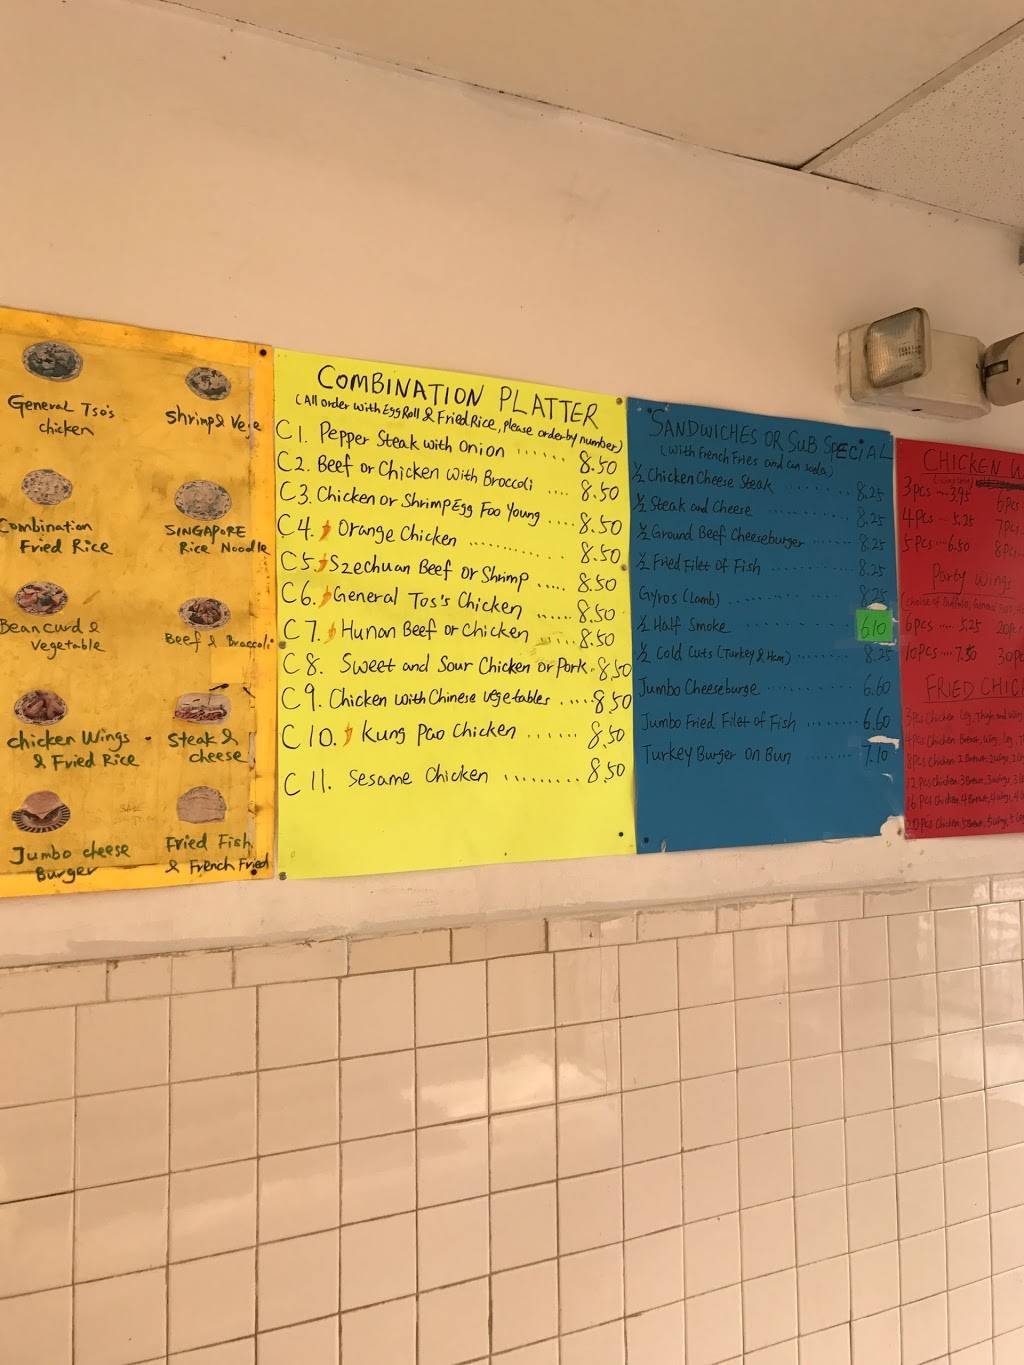 General Tso's
chicken
Shrimp & Vege
Combination
Fried Rice
SINGAPORE
Rice Noodle
Beancurd &
Vegetable
Beef & Broccoli
Chicken Wings
& Fried Rice
Steak &
cheese
Jumbo cheese
Burger
Fried Fish
& French Fried
COMBINATION PLATTER
(All order with Egg Roll & Fried Rice, please order by number)
C1. Pepper Steak with Onion ...... 8.50
C2. Beef or Chicken with Broccoli .... 8.50
C3. Chicken or Shrimp Egg Foo Young .... 8.50
C4. Orange Chicken ............. 8.50
C5. Szechuan Beef or Shrimp ..... 8.50
C6. General Tos's Chicken ...... 8.50
C7. Hunan Beef or Chicken ..... 8.50
C8. Sweet and Sour Chicken or Pork . 8.50
C9. Chicken with Chinese vegetables ..... 8.50
C10. Kung Pao Chicken ...... 8.50
C11. Sesame Chicken ......... 8.50
SANDWICHES OR SUB SPECIAL
(with French Fries and can soda)
½ Chicken Cheese Steak ........ 8.25
½ Steak and Cheese ........ 8.25
½ Ground Beef Cheeseburger ...... 8.25
½ Fried Filet of Fish ........ 8.25
Gyros (Lamb) ........... 8.25
½ Half Smoke ........... 6.10
½ Cold Cuts (Turkey & Ham) ........ 8.25
Jumbo Cheeseburge ......... 6.60
Jumbo Fried Filet of Fish ....... 6.60
Turkey Burger on Bun ...... 7.10
CHICKEN
3pcs ... 3.95
6pcs
4pcs ... 5.25
7pcs
5pcs ... 6.50
8pcs
Party Wings
6pcs .... 5.25
10pcs .... 7.50
FRIED
3pcs Chicken
4pcs Chicken
8pcs Chicken
12 pcs Chicken
16 pcs Chicken
20 pcs Chicken